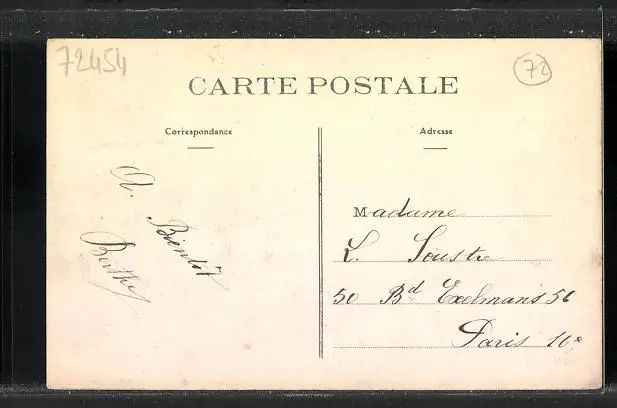 72454
72
CARTE POSTALE
Correspondance
Adresse
A. Bientôt
Berthe
Madame
L. Soustre
50 Bd Exelmans 50
Paris 16e